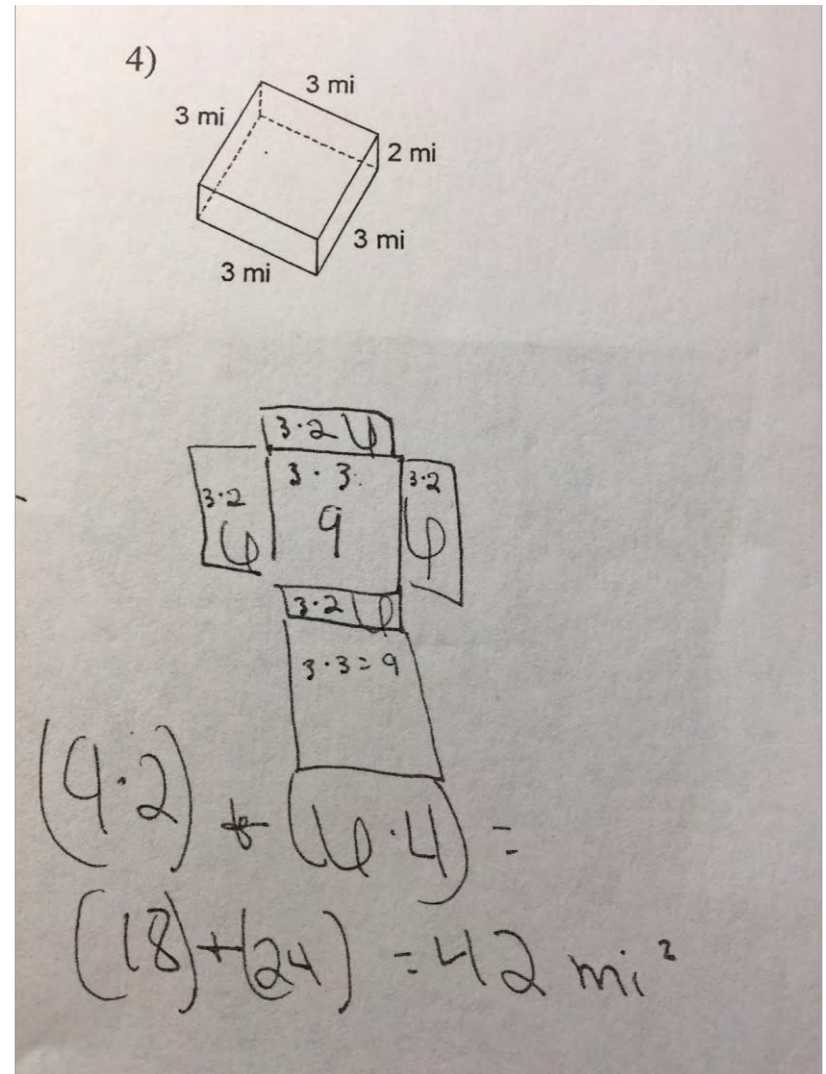 4)
3 mi
3 mi
2 mi
3 mi
3 mi
3·2 6
3·2
6
3·3
9
3·2
6
3·2 6
3·3=9
(9·2) + (6·4) =
(18)+(24) =42 mi²